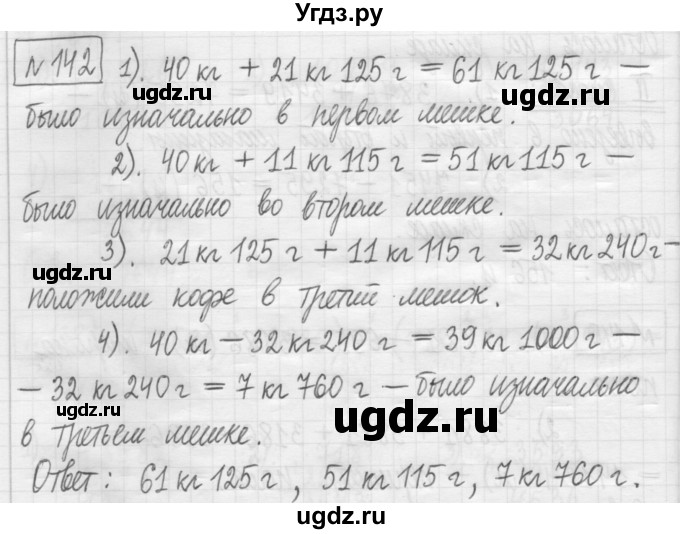 Угдз.ру
№142 1). 40 кг + 21 кг 125 г = 61 кг 125 г —
ugdz.ru ugdz.ru
было изначально в первом мешке.
2). 40 кг + 11 кг 115 г = 51 кг 115 г —
было изначально во втором мешке.
ugdz.ru
3). 21 кг 125 г + 11 кг 115 г = 32 кг 240 г —
ugdz.ru
положили кофе в третий мешок.
4). 40 кг — 32 кг 240 г = 39 кг 1000 г —
— 32 кг 240 г = 7 кг 760 г — было изначально
ugdz.ru ugdz.ru
в третьем мешке.
Ответ: 61 кг 125 г, 51 кг 115 г, 7 кг 760 г.
ugdz.ru